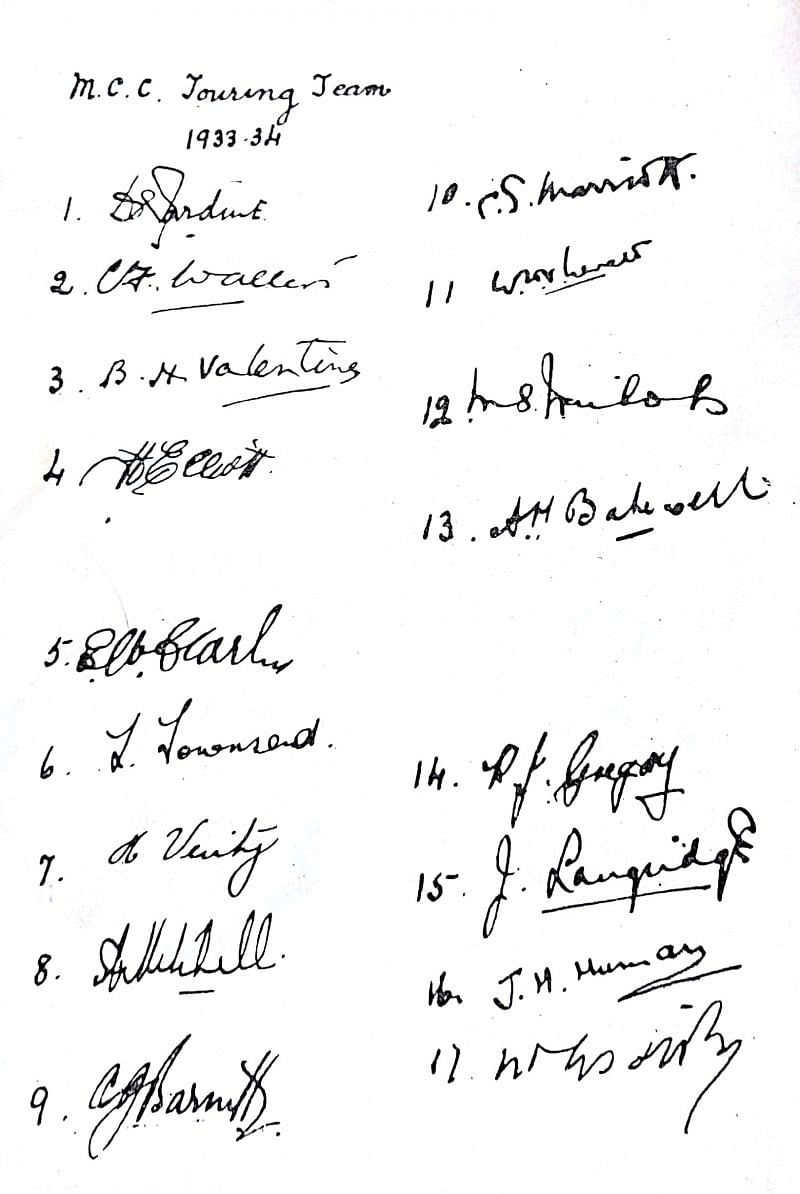 M.C.C. Touring Team
1933-34
1. D R Jardine
2. C F. Walters
3. B. H Valentine
4 H Elliott.
5. E W. Clark
6. L. Townsend.
7. H Verity
8. A Mitchell.
9. C J Barnett
10. C.S. Marriott.
11
12 M S. Nichols
13. A H Bakewell
14. R J. Gregory
15. J. Langridge
16. J. H. Human
17